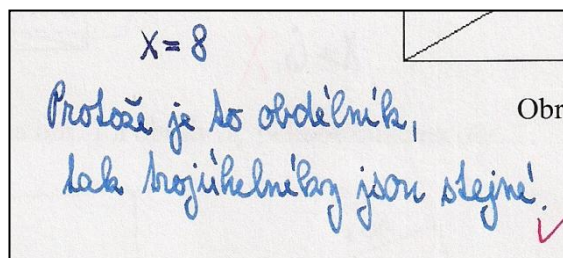 x = 8
Protože je to obdélník,
Obr
tak trojúhelníky jsou stejné.